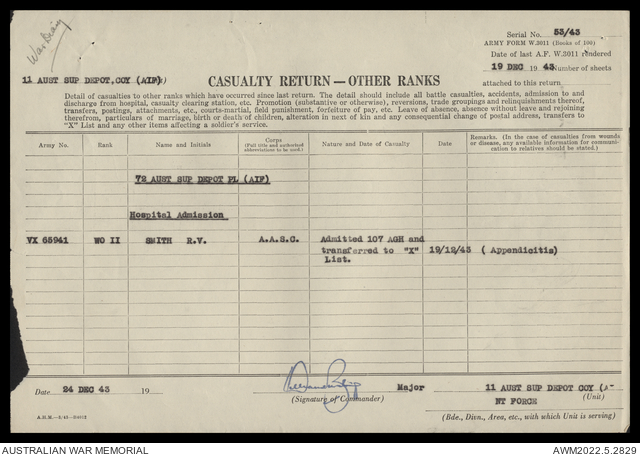 War Diary
Serial No. 53/43
ARMY FORM W.3011 (Books of 100)
Date of last A.F. W.3011 rendered
19 DEC 19 43 Number of sheets
11 AUST SUP DEPOT,COY (AIF) CASUALTY RETURN—OTHER RANKS attached to this return
Detail of casualties to other ranks which have occurred since last return. The detail should include all battle casualties, accidents, admission to and
discharge from hospital, casualty clearing station, etc. Promotion (substantive or otherwise), reversions, trade groupings and relinquishments thereof,
transfers, postings, attachments, etc., courts-martial, field punishment, forfeiture of pay, etc. Leave of absence, absence without leave and rejoining
therefrom, particulars of marriage, birth or death of children, alteration in next of kin and any consequential change of postal address, transfers to
"X" List and any other items affecting a soldier's service.
Army No. Rank Name and Initials Corps (Full title and authorized abbreviations to be used.) Nature and Date of Casualty Date Remarks. (In the case of casualties from wounds or disease, any available information for communication to relatives should be stated.)
72 AUST SUP DEPOT PL (AIF)
Hospital Admission
VX 65941 WO II SMITH R.V. A.A.S.C. Admitted 107 AGH and
transferred to "X" 19/12/43 ( Appendicitis)
List.
Date 24 DEC 43 19 Major 11 AUST SUP DEPOT COY (A
(Signature of Commander) (Unit)
NT FORCE
(Bde., Divn., Area, etc., with which Unit is serving)
AUSTRALIAN WAR MEMORIAL AWM2022.5.2829